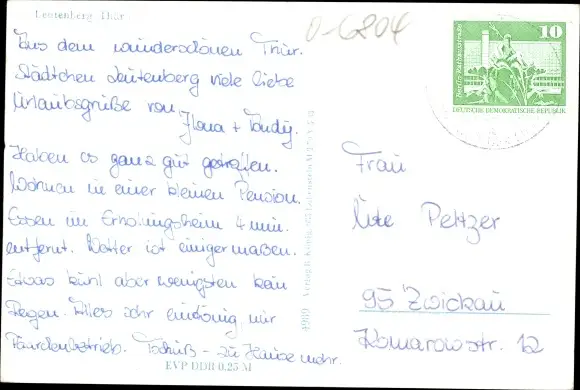 Leutenberg Thür.
0-6804
Aus dem wunderschönen Thür.
Städtchen Leutenberg viele liebe
Urlaubsgrüße von
Ilona +
Haben es ganz gut getroffen.
Wohnen in einer kleinen Pension.
Essen im Erholungsheim 4 min.
entfernt. Wetter ist einigermaßen.
Etwas kühl aber wenigsten kein
Regen. Alles sehr eintönig, nur
Tschüß – zu Hause mehr.
EVP DDR 0.25 M
10
DEUTSCHE DEMOKRATISCHE REPUBLIK
Frau
Ute Peltzer
95 Zwickau
Komarowstr. 12